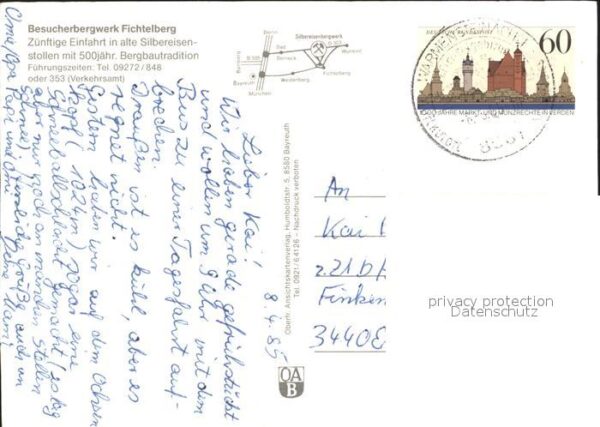 Besucherbergwerk Fichtelberg
Zünftige Einfahrt in alte Silbereisen-
stollen mit 500jähr. Bergbautradition
Führungszeiten: Tel. 09272/848
oder 353 (Verkehrsamt)
Berlin
Silbereisenbergwerk
Bad
Berneck
Wunsied.
Bamberg
Weidenberg
Fichtelberg
Bayreuth
München
DEUTSCHE BUNDESPOST
60
1000 JAHRE MARKT- UND MÜNZRECHTE IN VERDEN
8.4.85
Lieber Kai!
Wir haben gerade gefrühstückt
und wollen um 9 Uhr mit dem
Bus zu einer Tagesfahrt auf-
brechen.
Draußen ist es kühl, aber es
regnet nicht.
Gestern haben wir auf dem Ochsen-
kopf (1024m) sogar eine
Schneeballschlacht gemacht (es lag
aber nur noch an manchen Stellen
Schnee). Herzliche Grüße auch an
Oma, Opa, Papa und
Deine Mami
Oberfr. Ansichtskartenverlag, Humboldtstr. 5, 8580 Bayreuth
Tel. 0921/64126 – Nachdruck verboten
OA
B
An
Kai
z.Zt.
Finken
3440
privacy protection
Datenschutz